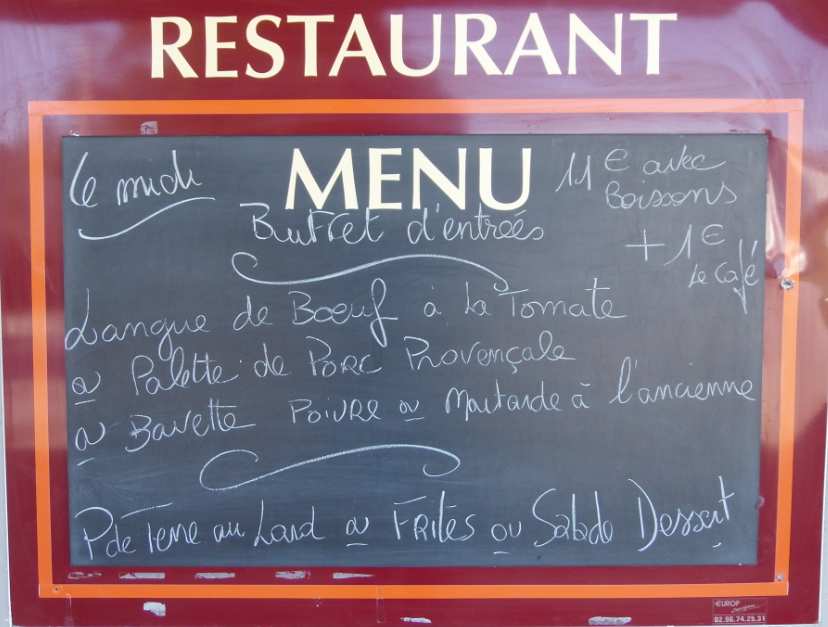 RESTAURANT
Ce midi
MENU
11 € avec
Boissons
Buffet d'entrées
+ 1 €
Le Café
Langue de Boeuf à la Tomate
ou Palette de Porc Provençale
ou Bavette Poivre ou Moutarde à l'ancienne
P de Terre au Lard ou Frites ou Salade Dessert
EUROP
02.96.74.25.31